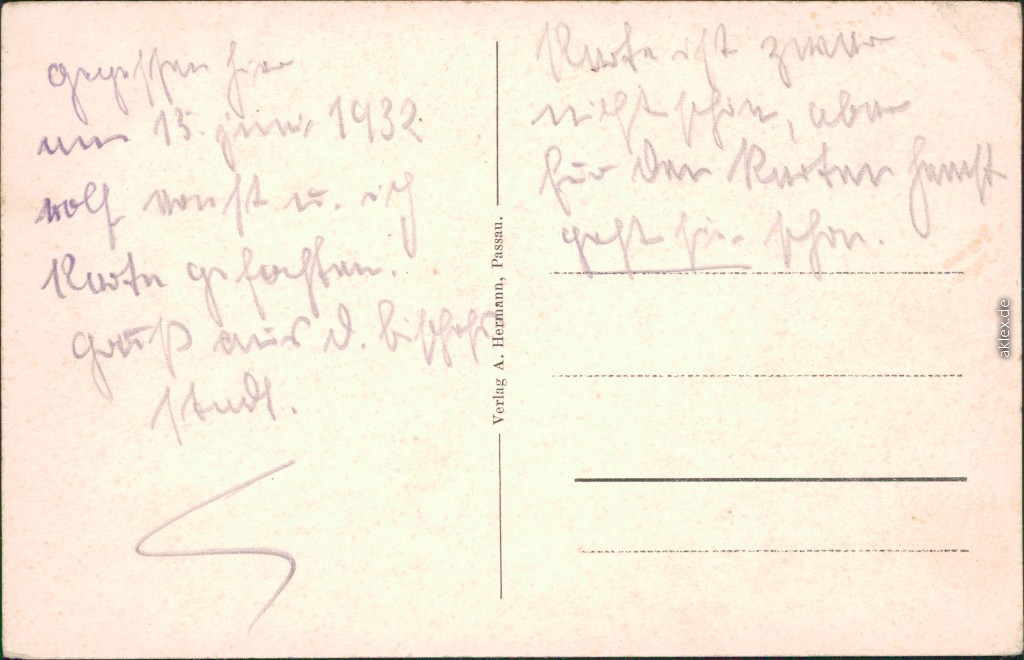 gegessen hier
am 15. juni 1932.
wolf u. ich
Karten gefochten.
gruß aus d. bischofs
stadt.
Karte ist zwar
nicht schön, aber
für den Karten
geht sie schon.
Verlag A. Hermann, Passau.
aklex.de